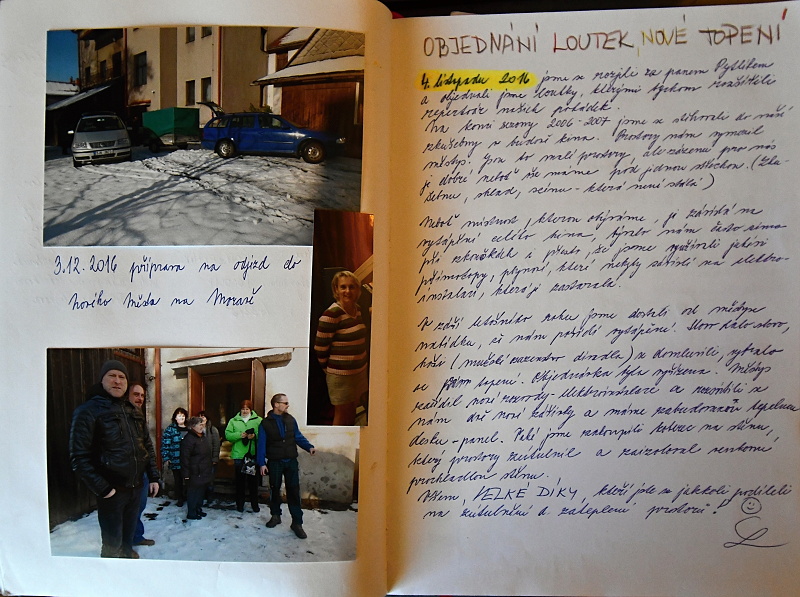 3.12.2016 příprava na odjezd do
Nového Města na Moravě
OBJEDNÁNÍ LOUTEK, NOVÉ TOPENÍ
4. listopadu 2016 jsme se rozjeli za panem Pytlíkem
a objednali jsme loutky, kterými bychom rozšířili
repertoár našich pohádek.
Na konci sezony 2006-2007 jsme se stěhovali do naší
zkušebny v budově kina. Prostory nám vymezil
městys. Jsou to malé prostory, ale zázemí pro nás
je dobré neboť vše máme pod jednou střechou. (Zku-
šebnu, sklad, scénu - která není stálá)
Neboť místnost, kterou obýváme, je závislá na
vytápění celého kina, bývalo nám často zima
při zkouškách i přesto, že jsme využívali jakési
přímotopy, plynové, které nebyly závislé na elektro-
instalaci, která je zastaralá.
V září letošního roku jsme dostali od městyse
nabídku, že nám pořídí vytápění. Slovo dalo slovo,
hoši (mužské osazenstvo divadla) se domluvili, vybralo
se topení. Objednávka byla vyřízena. Městys
zařídil nové rozvody - elektroinstalace a rozsvítili se
nám dvě nové zářivky a máme zabudovanou tepelnou
desku - panel. Také jsme zakoupili koberec na stěnu,
který prostory zútulnil a zaizoloval venkovní
prochladlou stěnu.
Všem, VELKÉ DÍKY, kteří jste se jakkoli podíleli
na zútulnění a zateplení prostorů!